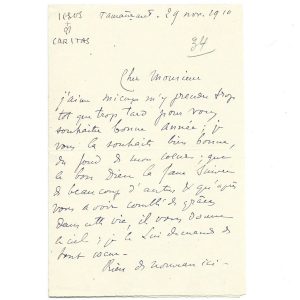 IESUS
CARITAS
Tamanrasset. 29 nov. 1910
34
Cher Monsieur
j'aime mieux m'y prendre trop
tôt que trop tard pour vous
souhaiter bonne année; je
vous la souhaite bien bonne,
du fond de mon cœur; que
le bon Dieu la fasse suivre
de beaucoup d'autres & qu'après
vous avoir comblé de grâces
dans cette vie, il vous donne
le ciel; je le Lui demande de
tout cœur -
Rien de nouveau ici -